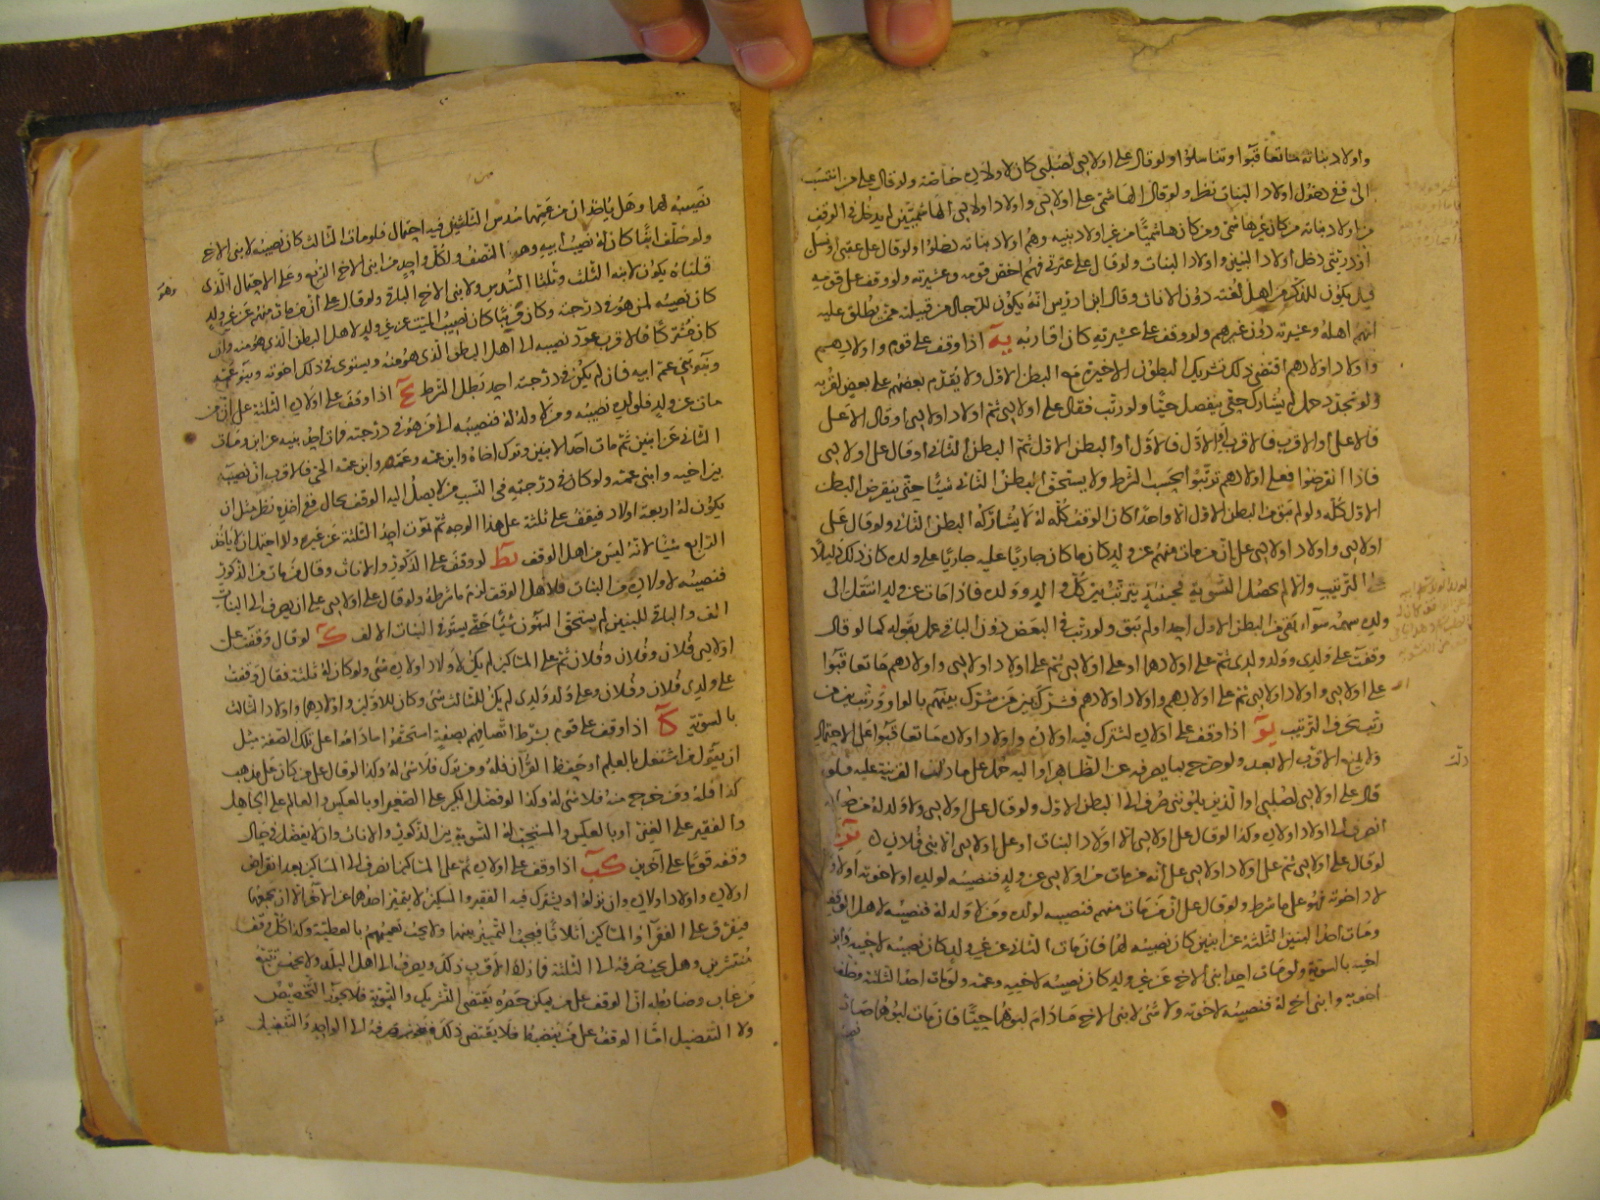 واولاد بناته ما تعاقبوا وتناسلوا ولو قال على اولادي لصلبي كان لاولاده خاصة ولو قال على من انتسب
الي ففي دخول اولاد البنات نظر ولو قال الهاشمي على اولادي واولاد اولادي الهاشميين لم يدخل في الوقف
من اولاد بناته من كان غير هاشمي ومن كان هاشميا من غير اولاد بنيه وهم اولاد بناته دخلوا ولو قال على عقبي او نسلي
او ذريتي دخل اولاد البنين واولاد البنات ولو قال على عترتي فهم اخص قومه وعشيرته ولو وقف على قومه
قيل يكون للذكر من اهل لغته دون الاناث وقال ابن ادريس انه يكون للرجال من قبيلته ممن يطلق عليه
انهم اهله وعشيرته دون غيرهم ولو وقف على عشيرته كان اقاربه يه اذا وقف على قوم واولادهم
واولاد اولادهم اقتضى ذلك تشريك البطون الاخيرة مع البطن الاول ولا يقدم بعضهم على بعض لقربه
ولو تجدد حمل لم يشارك حتى ينفصل حيا ولو رتب فقال على اولادي ثم اولاد اولادي او قال الاعلى
فالاعلى او الاقرب فالاقرب او الاول فالاول او البطن الاول ثم البطن الثاني او قال على اولادي
فاذا انقرضوا فعلى اولادهم ترتبوا بحسب الشرط ولا يستحق البطن الثاني شيئا حتى ينقرض البطن
الاول كله ولو لم يبق من البطن الاول الا واحدا كان الوقف كله له لا يشاركه البطن الثاني ولو قال على
اولادي واولاد اولادي على ان من مات منهم عن ولد كان ما كان جاريا عليه جاريا على ولده كان ذلك دليلا
على الترتيب والا لم يحصل التسوية فحينئذ يترتب بين كل والد وولده فاذا مات عن ولد انتقل الى
ولده سهمه سواء بقي من البطن الاول احد او لم يبق ولو رتب في البعض دون الباقي عمل بقوله كما لو قال
وقفت على ولدي وولد ولدي ثم على اولادهما او على اولادي ثم على اولاد اولادي واولادهم ما تعاقبوا
على اولادي واولاد اولادي ثم على اولادهم واولاد اولادهم فشرك بين من شرك بينهم بالواو ورتب بين من
رتب بحرف الترتيب يو اذا وقف على اولاده اشترك فيه اولاده واولاد اولاده ما تعاقبوا على الاحتمال
ولا يمنع الاقرب الابعد ولو صرح بما يصرفه عن الظاهر او اليه حمل على ما دلت القرينة عليه فلو
قال على اولادي لصلبي او الذين يلونني صرف الى البطن الاول ولو قال على اولادي ولا ولد له من صلبه
انصرف الى اولاد اولاده وكذا لو قال على اولادي الا اولاد البنات او على اولادي الا بني فلان يز
لو قال على اولادي ثم على اولاد اولادي على انه من مات من اولادي عن ولد فنصيبه لولده او لاخوته او لاولاد
اولاد اخوته فهو على ما شرط ولو قال على ان من مات منهم فنصيبه لولده ومن لا ولد له فنصيبه لاهل الوقف
ومات احد البنين الثلثة عن ابنين كان نصيبه لهما فان مات الثاني عن غير ولد كان نصيبه لاخيه وابني
اخيه بالسوية ولو مات احد ابني الاخ عن غير ولد كان نصيبه لاخيه وعمه ولو مات احد الثلثة وخلف
اخويه وابني اخ له فنصيبه لاخوته ولا شئ لابني الاخ ما دام ابوهما حيا فان مات ابوهما صار
نصيبه
نصيبه لهما وهل ياخذان من عمهما سدس الثلثين فيه احتمال فلو مات الثالث كان نصيبه لابني الاخ
ولو خلف ابنا كان له نصيب ابيه وهو النصف ولكل واحد من ابني الاخ الربع وعلى الاحتمال الذي
قلناه يكون لابنه الثلث وثلثا السدس ولابني الاخ الباقي ولو قال على ان من مات منهم عن غير ولد
وهو
كان نصيبه لمن هو في درجته وكان مرتبا كان نصيب الميت عن غير ولد لاهل البطن الذي هو منه وان
كان مشتركا فالاقرب عود نصيبه الى اهل البطن الذي هو منه ويستوي في ذلك اخوته وبنو عمه
وبنو بني عم ابيه فان لم يكن في درجته احد بطل الشرط يح اذا وقف على اولاده الثلثة على ان من
مات عن ولد فلولده نصيبه ومن لا ولد له فنصيبه الى من هو في درجته فمات احد بنيه عن ابن ومات
الثاني عن ابنين ثم مات احد الابنين وترك اخاه وابن عمه وعمه وابن عمه الحي فالاقرب ان نصيبه
بين اخيه وابني عمه ولو كان في درجته في النسب من لا يصل اليه الوقف بحال ففي اخذه نظر مثل ان
يكون له اربعة اولاد فيقف على ثلثة على هذا الوجه ثم يموت احد الثلثة عن غير ولد احتمل ان لا ياخذ
الرابع شيئا لانه ليس من اهل الوقف يط لو وقف على الذكور والاناث وقال من مات من الذكور
فنصيبه لاولاده ومن البنات فلاهل الوقف لزم ما شرطه ولو قال على اولادي على ان يصرف الى البنات
الف والباقي للبنين لم يستحق البنون شيئا حتى يستوفي البنات الالف ك لو قال وقفت على
اولادي فلان وفلان وفلان ثم على المساكين لم يكن لاولاد اولاده شئ ولو كان له ثلثة فقال وقفت
على ولدي فلان وفلان وعلى ولد ولدي لم يكن للثالث شئ وكان للاولين واولادهما واولاد الثالث
بالسوية كا اذا وقف على قوم بشرط اتصافهم بصفة استحقوا ما داموا على تلك الصفة مثل
ان يقول من اشتغل بالعلم او حفظ القران فله ومن ترك فلا شئ له وكذا لو قال على من كان على مذهب
كذا فله ومن خرج منه فلا شئ له وكذا لو فضل الكبير على الصغير او بالعكس والعالم على الجاهل
والفقير على الغني او بالعكس والمستحب له التسوية بين الذكور والاناث وان لا يفضل في حال
وقفه قوما على آخرين كب اذا وقف على اولاده ثم على المساكين انصرف الى المساكين بعد انقراض
اولاده واولاد اولاده وان نزلوا ويشترك فيه الفقير والمسكين لا يتميز احدهما عن الآخر الا ان يجمعهما
فيفرق على الفقراء والمساكين اثلاثا فيجب التمييز بينهما ولا يجب تعميمهم بالعطية وكذا كل وقف
منتشرين وهل يجب صرفه الى الثلثة فما زاد الاقرب ذلك ويصرف الى اهل البلد ولا يجب تتبع
من غاب وضابطه ان الوقف على من يمكن حصره يقتضي التشريك والتسوية فلا يجوز التخصيص
ولا التفضيل اما الوقف على من لا ينضبط فلا يقتضي ذلك فيجوز صرفه الى الواحد والتفضيل